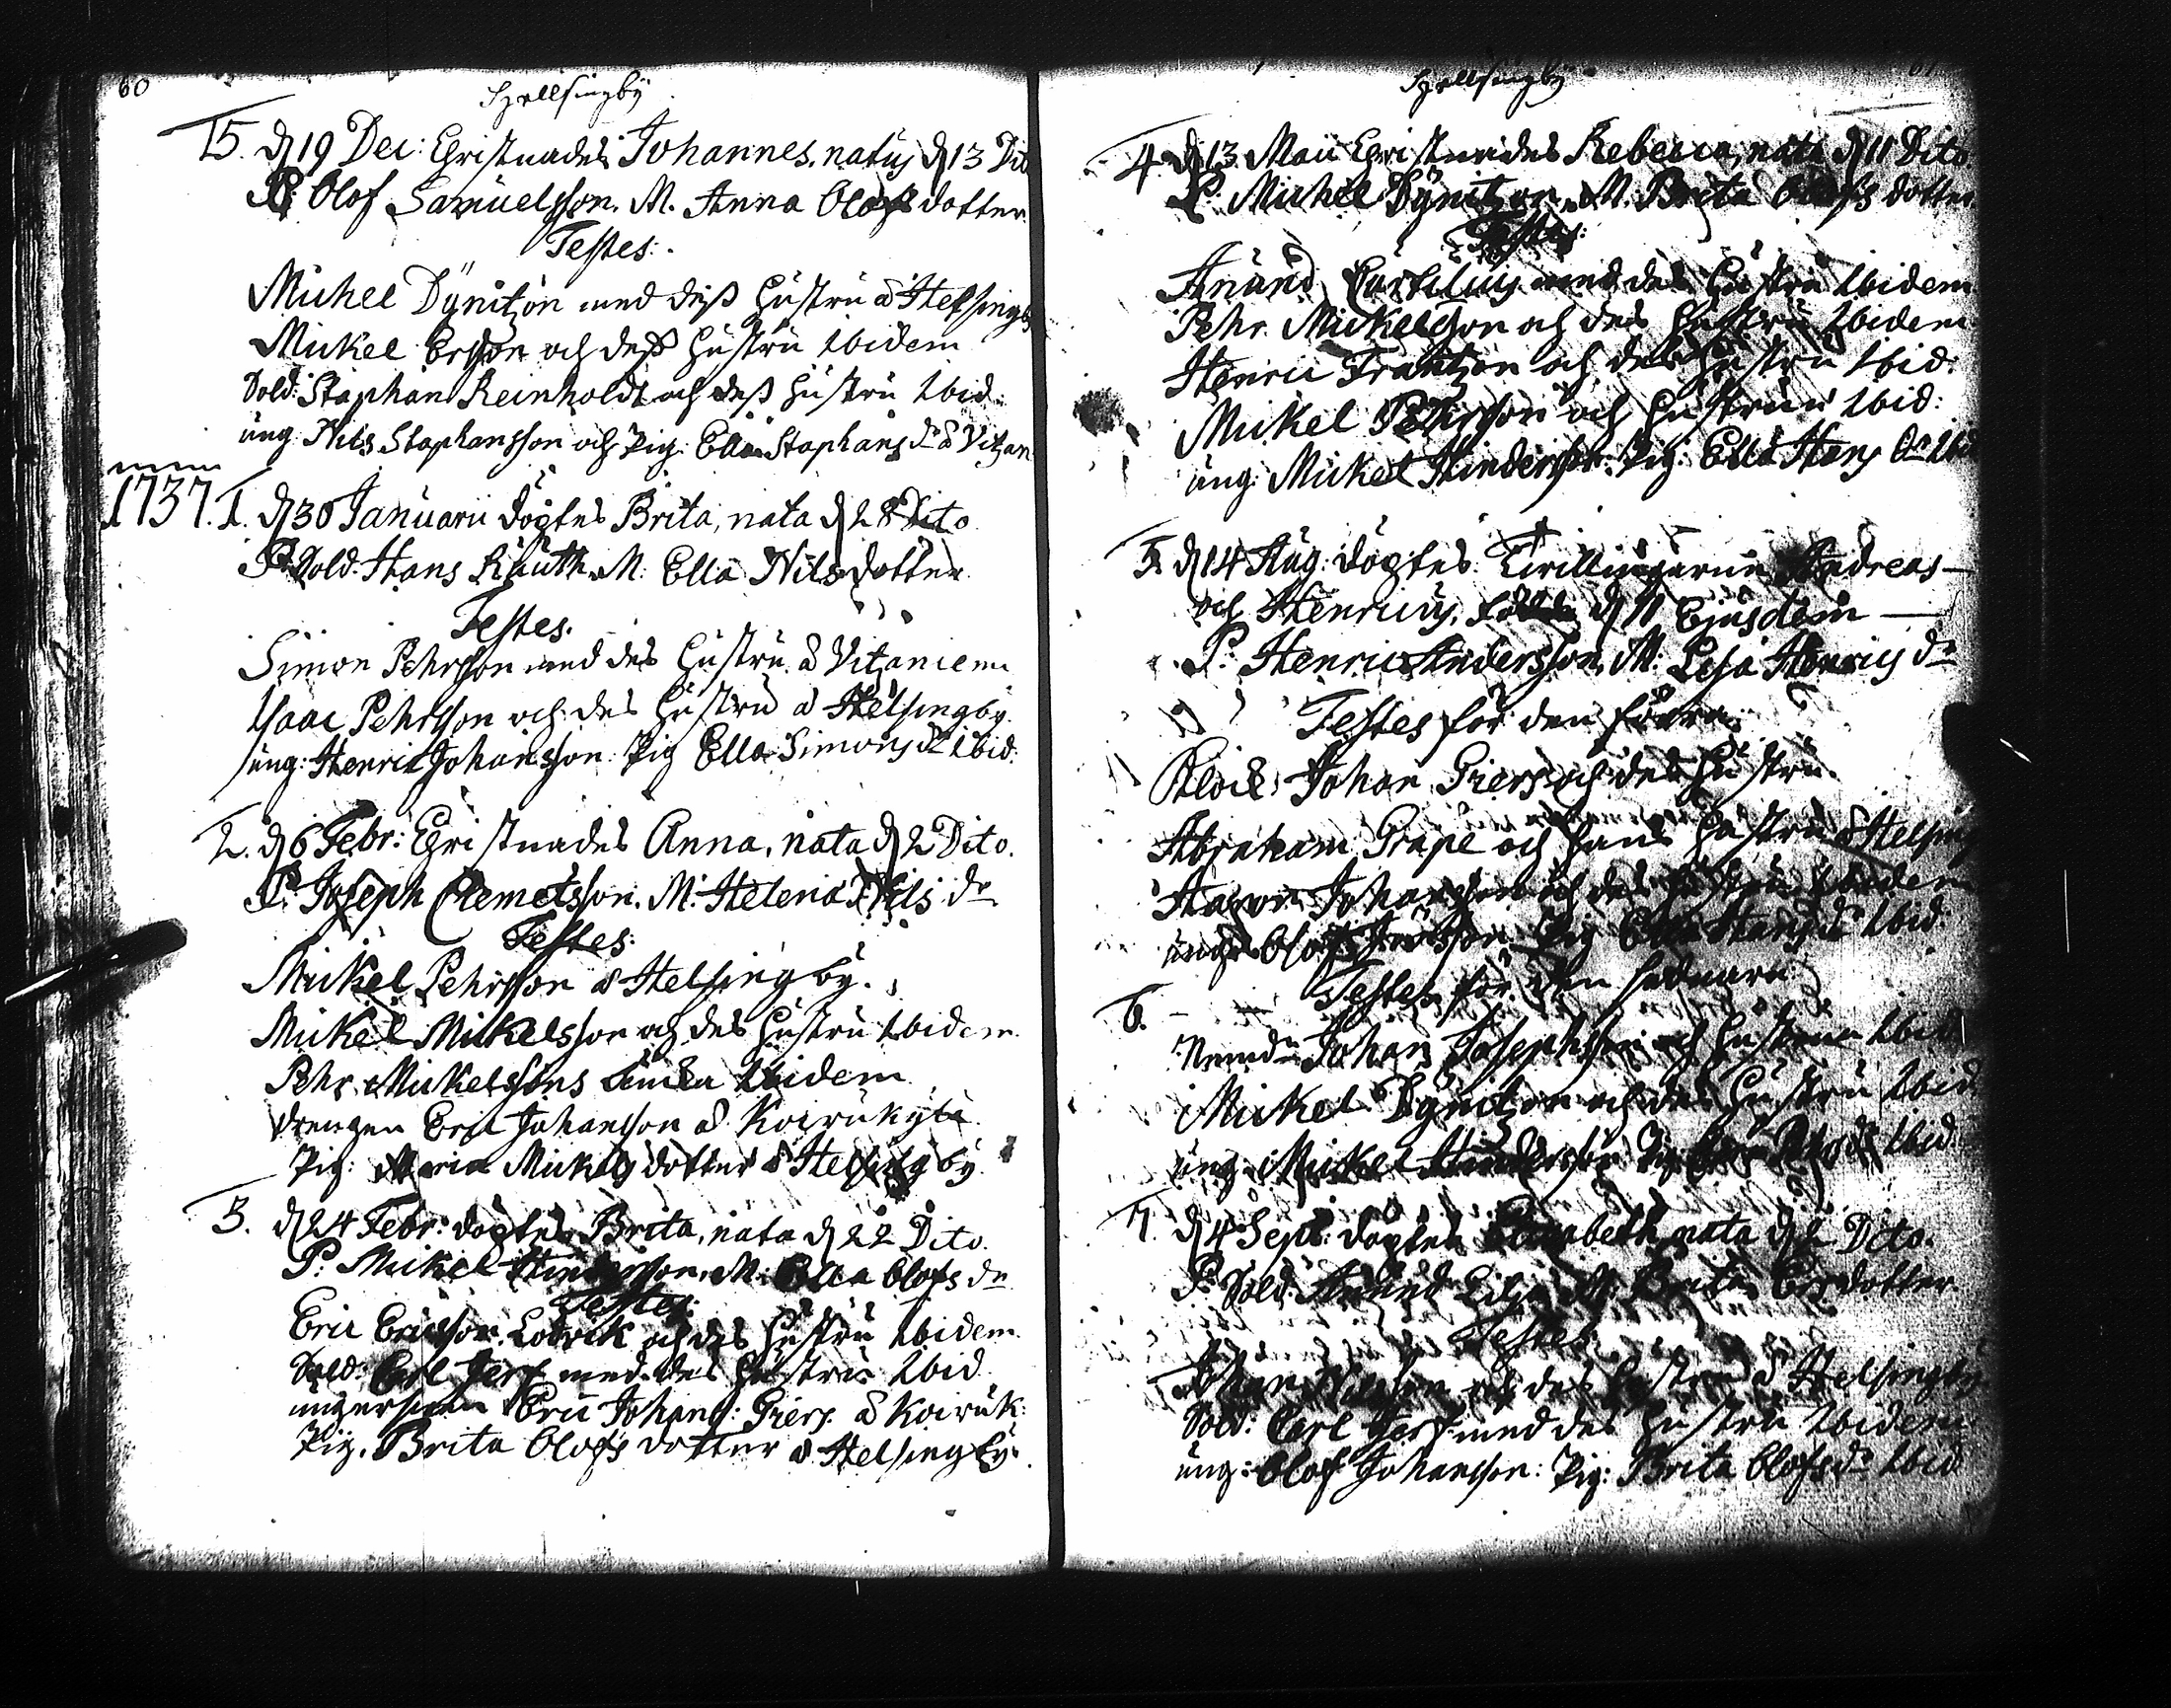 60
Hellsingby
15. d 19 Dec: Christnades Johannes, natus d 13 Dit
P: Olof Samuelsson. M. Anna Olofs dotter
Testes:
Michel Dÿnitzon med dess hustru a Helsingb
Mickel Ersson och dess hustru Ibidem
Sold: Staphan Reinholdt och dess hustru Ibid:
ung: Nils Staphansson och Pig: Ella Staphans dr a Vitzan
1737. 1. d 30 Januarii döptes Brita, nata d 28 Dito
P. Sold. Hans Knuth. M: Ella Nilsdotter
Testes.
Simon Pehrsson med des hustru a Vitzaniemi
Isaac Pehrsson och des hustru a Helsingby.
ung: Henric Johansson. Pig Ella Simons dr Ibid:
2. d 6 Febr: Christnades Anna, nata d 2 Dito.
P: Joseph Clemetsson. M: Helena Nils dr
Testes:
Mickel Pehrsson a Helsingby.
Mickel Mickelsson och des hustru Ibidem
Pehr Mickelssons Ibidem
drengen Eric Johansson a Koirukÿlä
Pig: Maria Mickels dotter a Helsingby
3. d 24 Febr: döptes Brita, nata d 22 Dito.
P: Mickel Hindersson. M: Ella Olofs dr
Testes:
Eric Ericsson och des hustru Ibidem
Sold: Carl Jerf med des hustru Ibid
ungersven Eric Johans: Giers a Koiruk:
Pig. Brita Olofs dotter a Helsingby.
61
Hellsingby
4. d 13 Maii Christnades Rebecca, nata d 11 Dito
P. Michel Dÿnitzon. M. Brita Olofs dotter
Testes:
Anund med des hustru Ibidem
Pehr Mickelsson och des hustru Ibidem
Henric Frantzon och des hustru Ibid:
Mickel Pehrsson och hustrun Ibid:
ung: Mickel Hindersson. Pig: Ella Hans dr Ibid
5. d 14 Aug: döptes Tvillingarne Andreas
och Henricus, födde d 11 Ejusdem
P: Henric Andersson, M: Lisa Henrics dr
Testes för den förra:
Johan Giers och des hustru.
Abraham Grape och hans hustru a Helsing
Johansson och des hustru Ibidem
ung: Olof Pig Ella Hans dr Ibid:
Testes för den sednare
6.
Nemdn Johan Josephsson och hustrun Ibid
Mickel Dÿnitzon och des hustru Ibid
ung: Mickel Hindersson Pig Ibid:
7. d 4 Sept: döptes Elisabeth, nata d 2 Dito.
P. Sold: Anund Lilja. M: Brita Ersdotter
Testes
Johan Nilsson och des hustru a Helsingby
Sold: Carl Jerf med des hustru Ibidem
ung: Olof Johansson: Pig: Brita Olofs dr Ibid